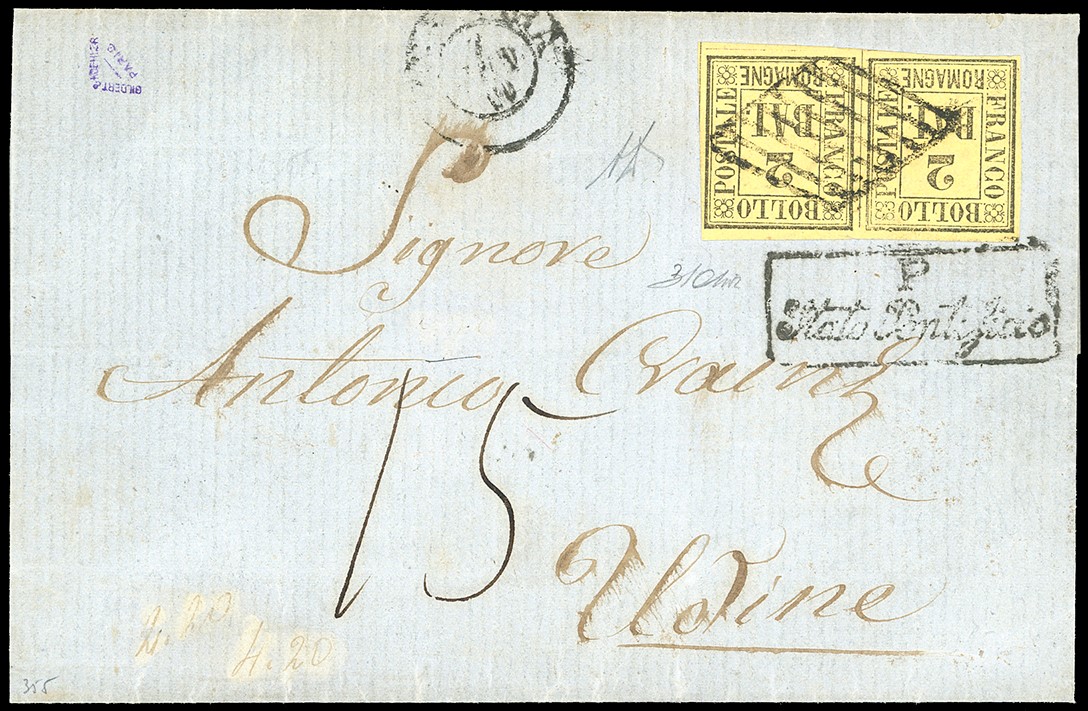 GILBERT & KOEHLER
PARIS
FRANCO
BOLLO
POSTALE
ROMAGNE
2
BAI
FRANCO
BOLLO
POSTALE
ROMAGNE
2
BAI
P
Stato Pontificio
Signore
Antonio Crainz
15
Udine
2.20
4.20
355